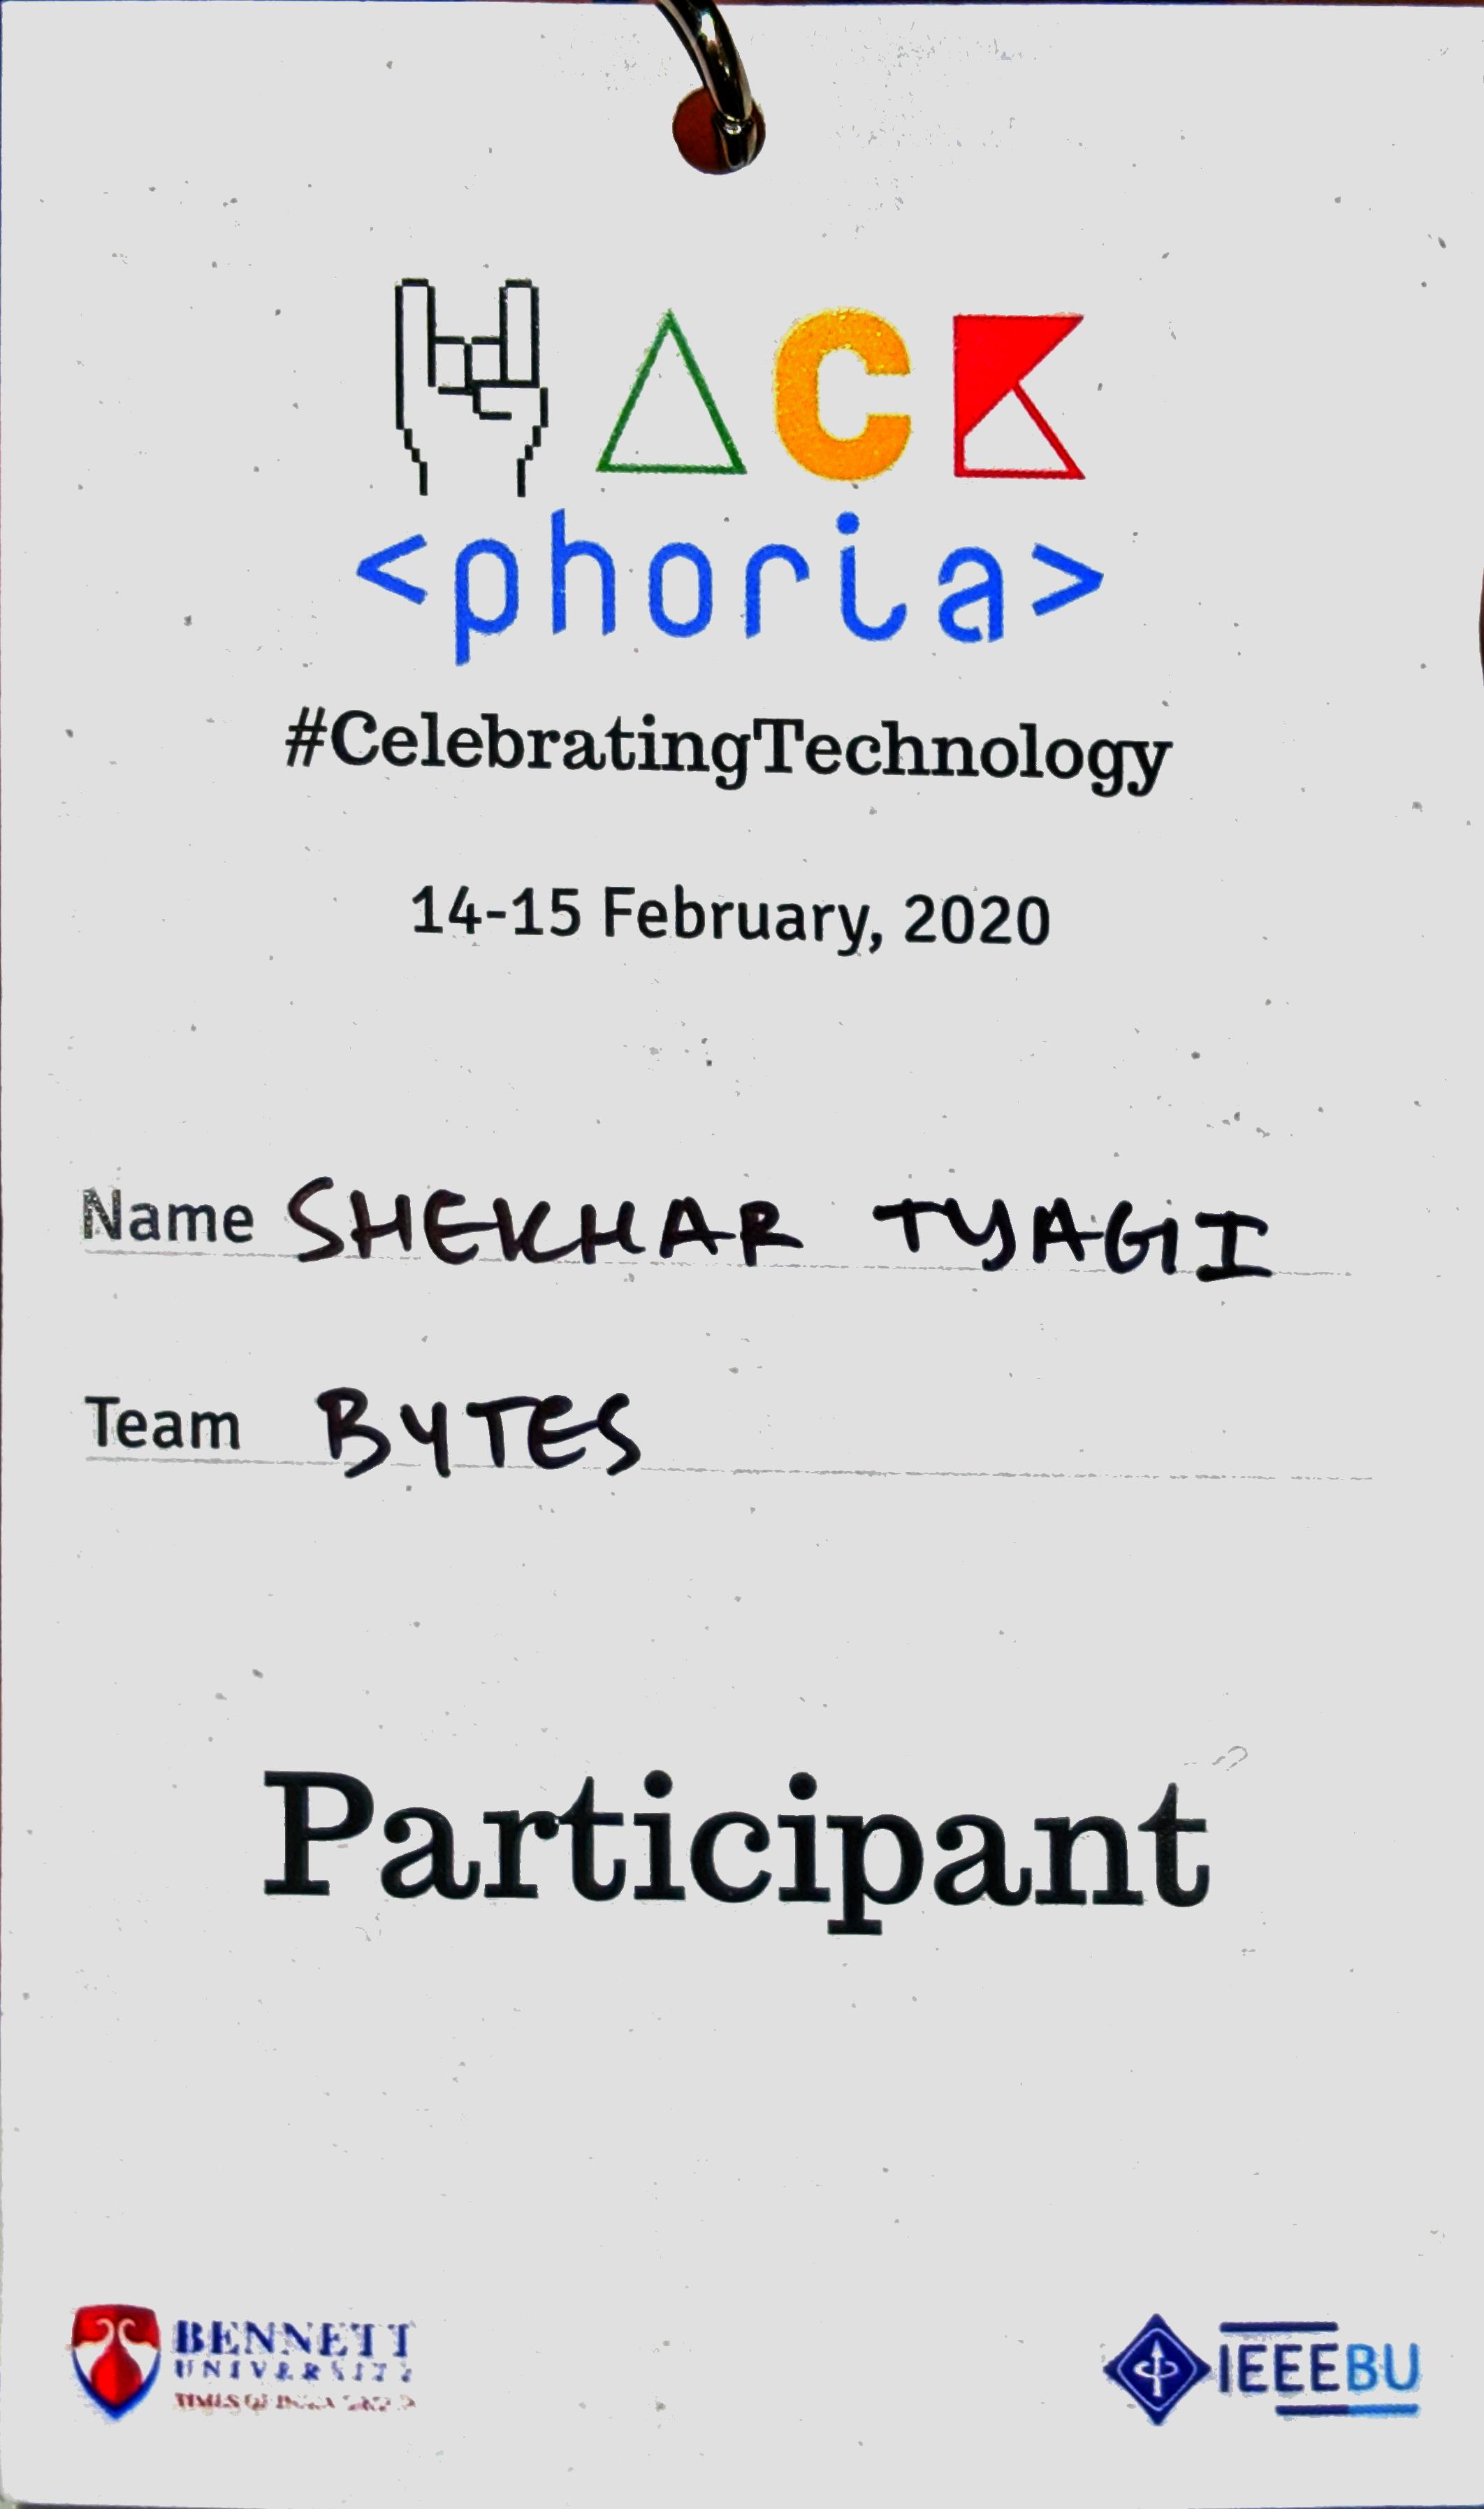 HACK
<phoria>
#CelebratingTechnology
14-15 February, 2020
Name SHEKHAR TYAGI
Team BYTES
Participant
BENNETT
UNIVERSITY
TIMES OF INDIA GROUP
IEEEBU